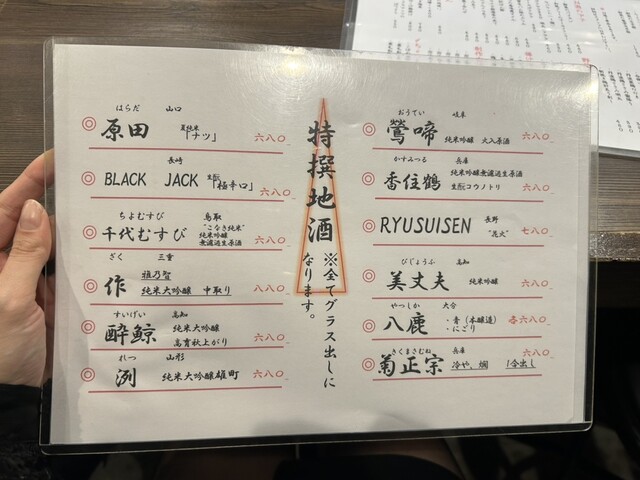 特撰地酒
※全てグラス出しに
なります。
はらだ 山口
◎原田 夏純米「ナツ」 六八〇
長崎
◎BLACK JACK 生酛「極辛口」 六八〇
ちよむすび 鳥取
◎千代むすび "こなき純米" 純米吟醸 無濾過生原酒 六八〇
ざく 三重
◎作 雅乃智
純米大吟醸 中取り 八八〇
すいげい 高知
◎酔鯨 純米大吟醸
高育秋上がり 六八〇
れつ 山形
◎洌 純米大吟醸雄町 六八〇
おうてい 岐阜
◎鶯啼 純米吟醸 火入原酒 六八〇
かすみつる 兵庫
◎香住鶴 純米吟醸無濾過生原酒
生酛コウノトリ 六八〇
長野
◎RYUSUISEN "花火" 七八〇
びじょうふ 高知
◎美丈夫 純米吟醸 六八〇
やつしか 大分
◎八鹿 ・青(本醸造)
・にごり 各六八〇
きくまさむね 兵庫
◎菊正宗 冷や、燗 1合出し 六八〇